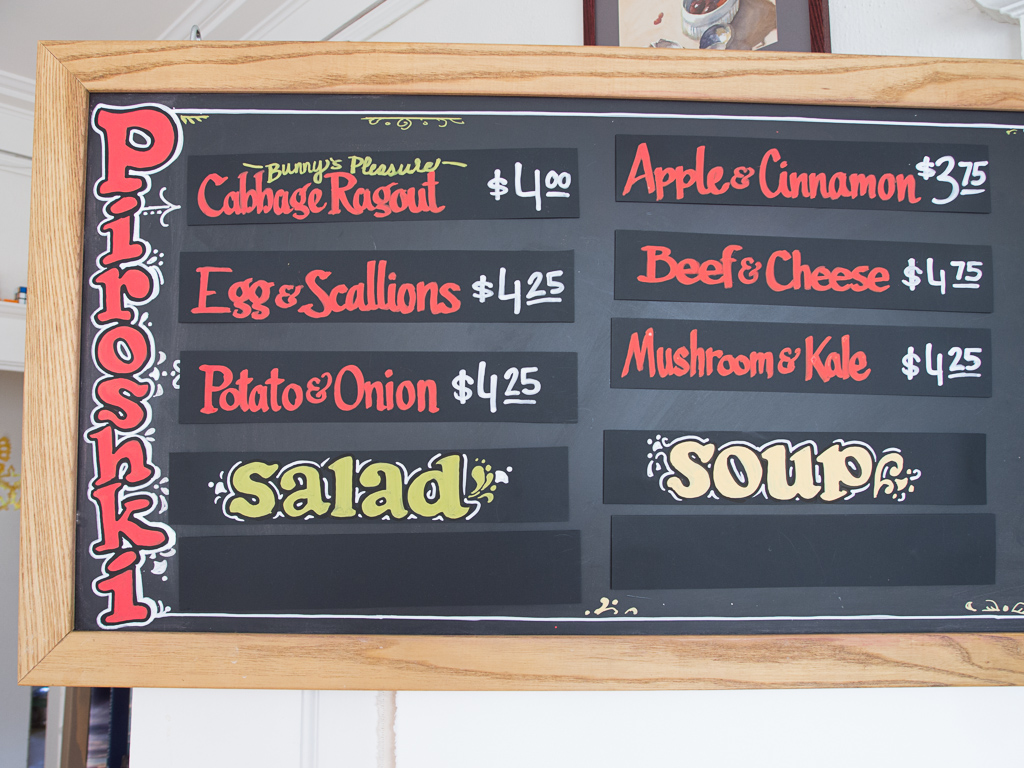 Piroshki
Bunny's Pleasure
Cabbage Ragout $4.00
Egg & Scallions $4.25
Potato & Onion $4.25
salad
Apple & Cinnamon $3.75
Beef & Cheese $4.75
Mushroom & Kale $4.25
soup